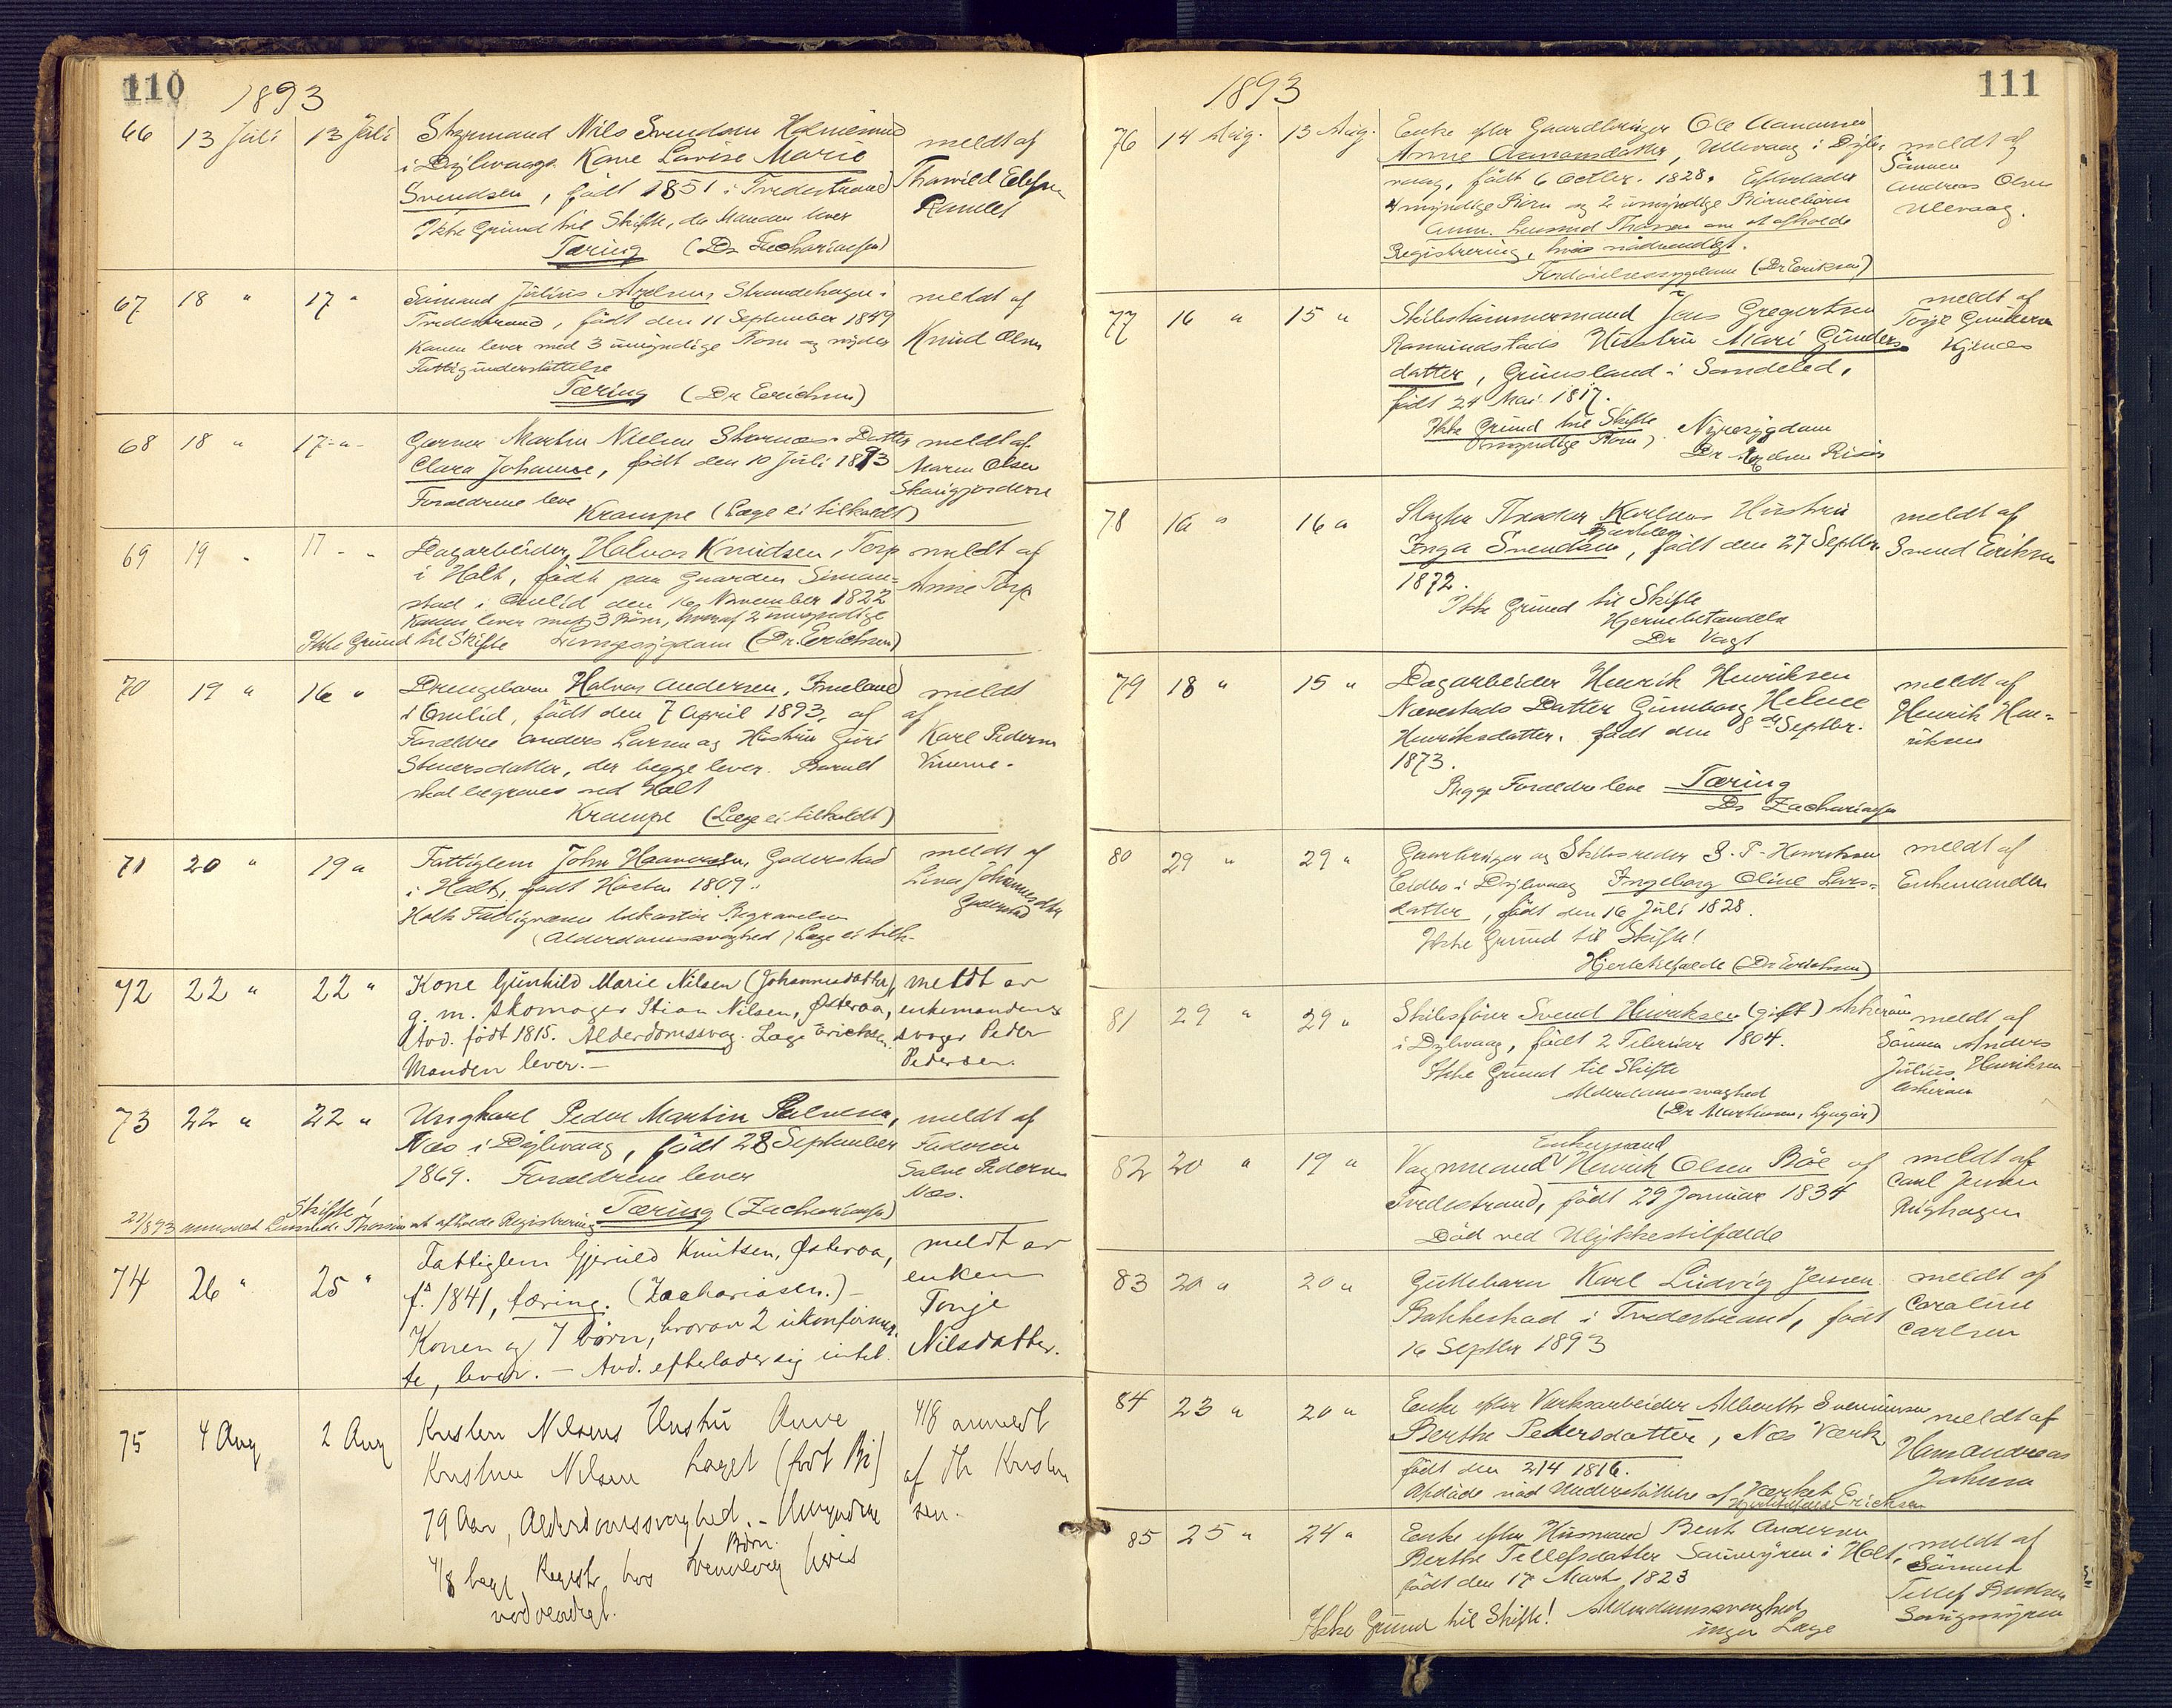 110
1893
66 13 Juli 13 Juli Styrmand Nils Svendsen Holmesund meldt af
i Dybvaags Kone Lovise Marie Thorvild Ellefsen
Svendsen, født 1851 i Tvedestrand
Ikke Grund til Skifte, da Manden lever
Tæring (Dr Zachariassen)
67 18 " 17 " Sømand Julius Axelsen, Strandehagen i meldt af
Tvedestrand, født den 11 September 1849
Konen lever med 3 umyndige Børn og nyder Knud Olsen
Fattigunderstøttelse
Tæring (Dr Erichsen)
68 18 " 17 " Garver Martin Nielsen Datter meldt af
Clara Johanne, født den 10 Juli 1893 Maren Olsen
Forældrene leve
Krampe (Læge ei tilkaldt)
69 19 " 17 " Dagarbeider Halvor Knudsen, Torp meldt af
i Holt, født paa Gaarden Simon= Anne Torp
stad i Omlid den 16 November 1822
Konen lever med 3 Børn, hvoraf 2 umyndige
Ikke Grund til Skifte Lungesygdom (Dr. Erichsen)
70 19 " 16 " Drengebarn Halvor Andersen, meldt
i Omlid, født den 7 April 1893, af af
Forældre Anders Larsen og Hustru Guri Karl Pedersen
datter, der begge lever. Barnet
skal begraves ved Holt
Krampe (Læge ei tilkaldt)
71 20 " 19 " Fattiglem John Haavorsen, Goderstad meldt af
i Holt, født Høsten 1809. Lina Johannesdtr
Holts Fattigvæsen bekoster Begravelsen Goderstad
(Alderdomssvaghed) Læge ei tilk.
72 22 " 22 " Kone Gunhild Marie Nilsen (Johannesdatter), meldt av
g. m. skomager Stian Nilsen, Østeraa, enkemandens
Avd. født 1815. Alderdomssvag. Læge Erichsen. svoger Peder
Manden lever.— Pedersen.
73 22 " 22 " Ungkarl Peder Martin Salvesen, meldt af
Næs i Dybvaag, født 28 September Faderen
1869. Forældrene lever Salve Pedersen
Skifte! Næs.
Tæring (Zachariassen)
22/8 93 anmodet Lensmd. Thorsen at afholde Registrering
74 26 " 25 " Fattiglem Gjeruld Knutsen, Østeraa, meldt av
f. 1841, tæring. (Zachariasen.)— enken
Konen og 7 børn, hvorav 2 ukonfirmer- Tonje
te, lever. — Avd. efterlader sig intet. Nilsdatter.
75 4 Aug 2 Aug Kristen Nilsens Hustru Anne 4/8 anmeldt
Kristine Nilsen Laget (født Bi) af Th Kristen
79 Aar, Alderdomssvaghed. – Umyndige sen.
Børn.
4/8 begj Registr hos hvis
nødvendigt.
111
1893
76 14 Aug. 13 Aug. Enke efter Gaardbruger Ole Aanonsen meldt af
Anne Aanonsdatter, Ullevaag i Dyb- Sønnen
vaag, født 6 Octbr. 1828. Efterlader Andreas Olsen
4 myndige Børn og 2 umyndige Børnebørn Ullevaag.
Anm. Lensmd Thorsen om at afholde
Registrering, hvis nødvendigt.
Fordøielsessygdom (Dr Erichsen)
77 16 " 15 " Skibstømmermand Jens Gregertsen meldt af
Rommundstads Hustru Mari Gunders Torje Gundersen
datter, Grunsland i Søndeled,
født 24 Mai 1817.
Ikke Grund til Skifte Nyresygdom
(umyndige Børn) Dr Risør
78 16 " 16 " Slagter Theodor Karlsens Hustru meldt af
Inga Svendsen, født den 27 Septbr. Svend Eriksen
1872.
Ikke Grund til Skifte
Hjernebetændelse
Dr Vogt
79 18 " 15 " Dagarbeider Henrik Henriksen meldt af
Nævestads Datter Gunborg Helene Henrik Hen=
Henriksdatter, født den 8de Septbr. riksen
1873.
Begge Forældre leve Tæring
Dr Zachariassen
80 29 " 29 " Gaardbruger og Skibsreder S. P. Henriksen meldt af
Eidbo i Dybvaag Ingeborg Oline Lars= Enkemanden
datter, født den 16 Juli 1828.
Ikke Grund til Skifte!
Hjertetilfælde (Dr Erichsen)
81 29 " 29 " Skibsfører Svend Henriksen (gift) Askerøen meldt af
i Dybvaag, født 2 Februar 1804. Sønnen Anders
Ikke Grund til Skifte Julius Henriksen
Alderdomssvaghed Askerøen
(Dr Martinsen, Lyngør)
82 20 " 19 " Enkemand
Vognmand Henrik Olsen Bøe af meldt af
Tvedestrand, født 29 Januar 1834 Carl Jensen
Død ved Ulykkestilfælde
83 20 " 20 " Guttebarn Karl Ludvig Jensen meldt af
Bakkestad i Tvedestrand, født Caroline
16 Septbr 1893 Carlsen
84 23 " 20 " Enke efter Værksarbeider Alberth Evensen meldt af
Berthe Pedersdatter, Næs Værk Hans Andreas
født den 2/4 1816. Johnsen
Afdøde nød Understøttelse af Værket
Hjertetilfælde Erichsen
85 25 " 24 " Enke efter Husmand Bent Andersen meldt af
Berthe Tellefsdatter Saugmyren i Holt, Sønnen
født den 17 Marts 1823 Tellef Bentsen
Ikke Grund til Skifte! Alderdomssvaghed Saugmyren
ingen Læge